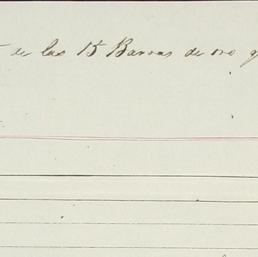 de las 15 Barras de oro q